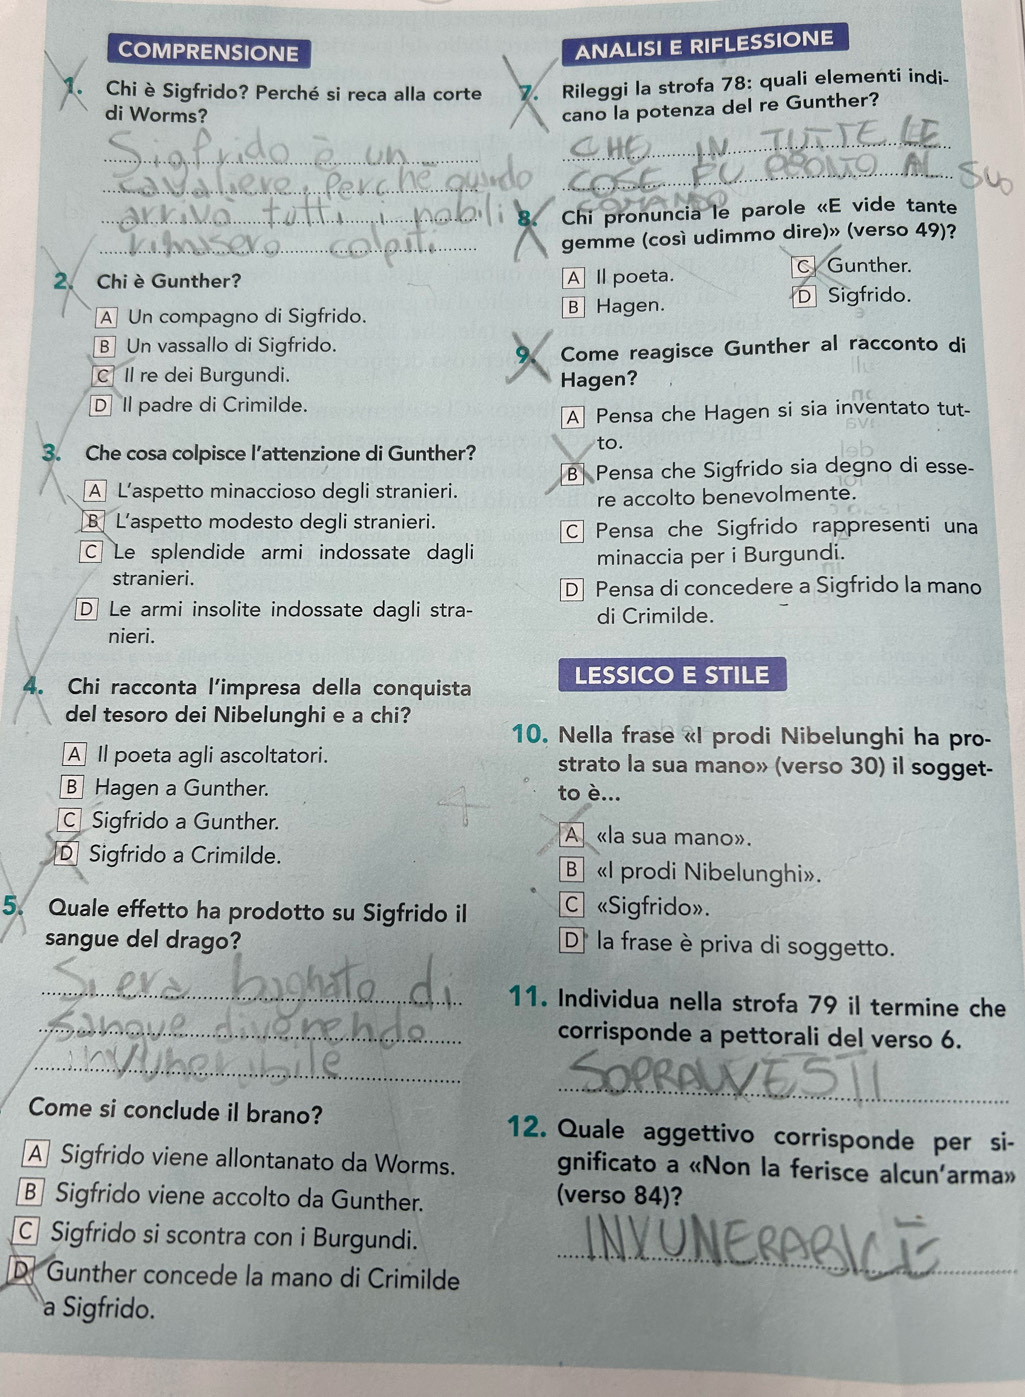 COMPRENSIONE
1. Chi è Sigfrido? Perché si reca alla corte
di Worms?
Sigfrido è un
cavaliere, Perché quando
arrivò tutti i nobili
rimasero colpiti.
2. Chi è Gunther?
A Un compagno di Sigfrido.
B Un vassallo di Sigfrido.
C Il re dei Burgundi.
D Il padre di Crimilde.
3. Che cosa colpisce l'attenzione di Gunther?
A L'aspetto minaccioso degli stranieri.
B L'aspetto modesto degli stranieri.
C Le splendide armi indossate dagli
stranieri.
D Le armi insolite indossate dagli stra-
nieri.
4. Chi racconta l'impresa della conquista
del tesoro dei Nibelunghi e a chi?
A Il poeta agli ascoltatori.
B Hagen a Gunther.
C Sigfrido a Gunther.
D Sigfrido a Crimilde.
5. Quale effetto ha prodotto su Sigfrido il
sangue del drago?
Si era baghato di
sangue divenendo
invuneribile
Come si conclude il brano?
A Sigfrido viene allontanato da Worms.
B Sigfrido viene accolto da Gunther.
C Sigfrido si scontra con i Burgundi.
D Gunther concede la mano di Crimilde
a Sigfrido.
ANALISI E RIFLESSIONE
7. Rileggi la strofa 78: quali elementi indi-
cano la potenza del re Gunther?
CHE IN TUTTE LE
COSE FU PRONTO AL SUO
COMANDO
8. Chi pronuncia le parole «E vide tante
gemme (così udimmo dire)» (verso 49)?
A Il poeta.
B Hagen.
C Gunther.
D Sigfrido.
9. Come reagisce Gunther al racconto di
Hagen?
A Pensa che Hagen si sia inventato tut-
to.
B Pensa che Sigfrido sia degno di esse-
re accolto benevolmente.
C Pensa che Sigfrido rappresenti una
minaccia per i Burgundi.
D Pensa di concedere a Sigfrido la mano
di Crimilde.
LESSICO E STILE
10. Nella frase «I prodi Nibelunghi ha pro-
strato la sua mano» (verso 30) il sogget-
to è...
A «la sua mano».
B «I prodi Nibelunghi».
C «Sigfrido».
D la frase è priva di soggetto.
11. Individua nella strofa 79 il termine che
corrisponde a pettorali del verso 6.
SOPRAVVESTI
12. Quale aggettivo corrisponde per si-
gnificato a «Non la ferisce alcun'arma»
(verso 84)?
INVUNERABILE